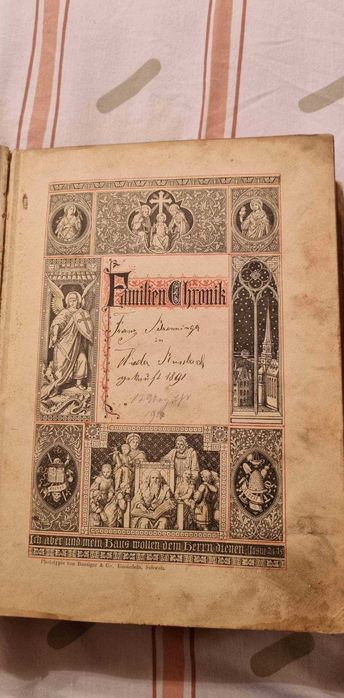 Familien Chronik
Franz
in
Nieder
gekauft 1891
Ich aber und mein Haus wollen dem Herrn dienen. (Josue 24.15
Phototypie von Benziger & Co., Einsiedeln, Schweiz.